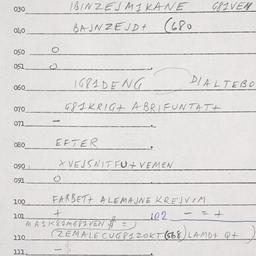 030 IBINZEJMIKANE G81VEN
040 BAJNZEJD+ (680
050 O
051 O
060 IG81DENG DIALTEBO
070 G81KRIG+ ABRIFUNTAT+
071 –
080 EFTER
090 XVEJSNITFU+VEMEN
091 O
100 FARBET+ ALEMAJNEKREJVIM
101 + 102 – = +
110 (ZEMALECUG81ZOKT LAMD+ Q+ )
111